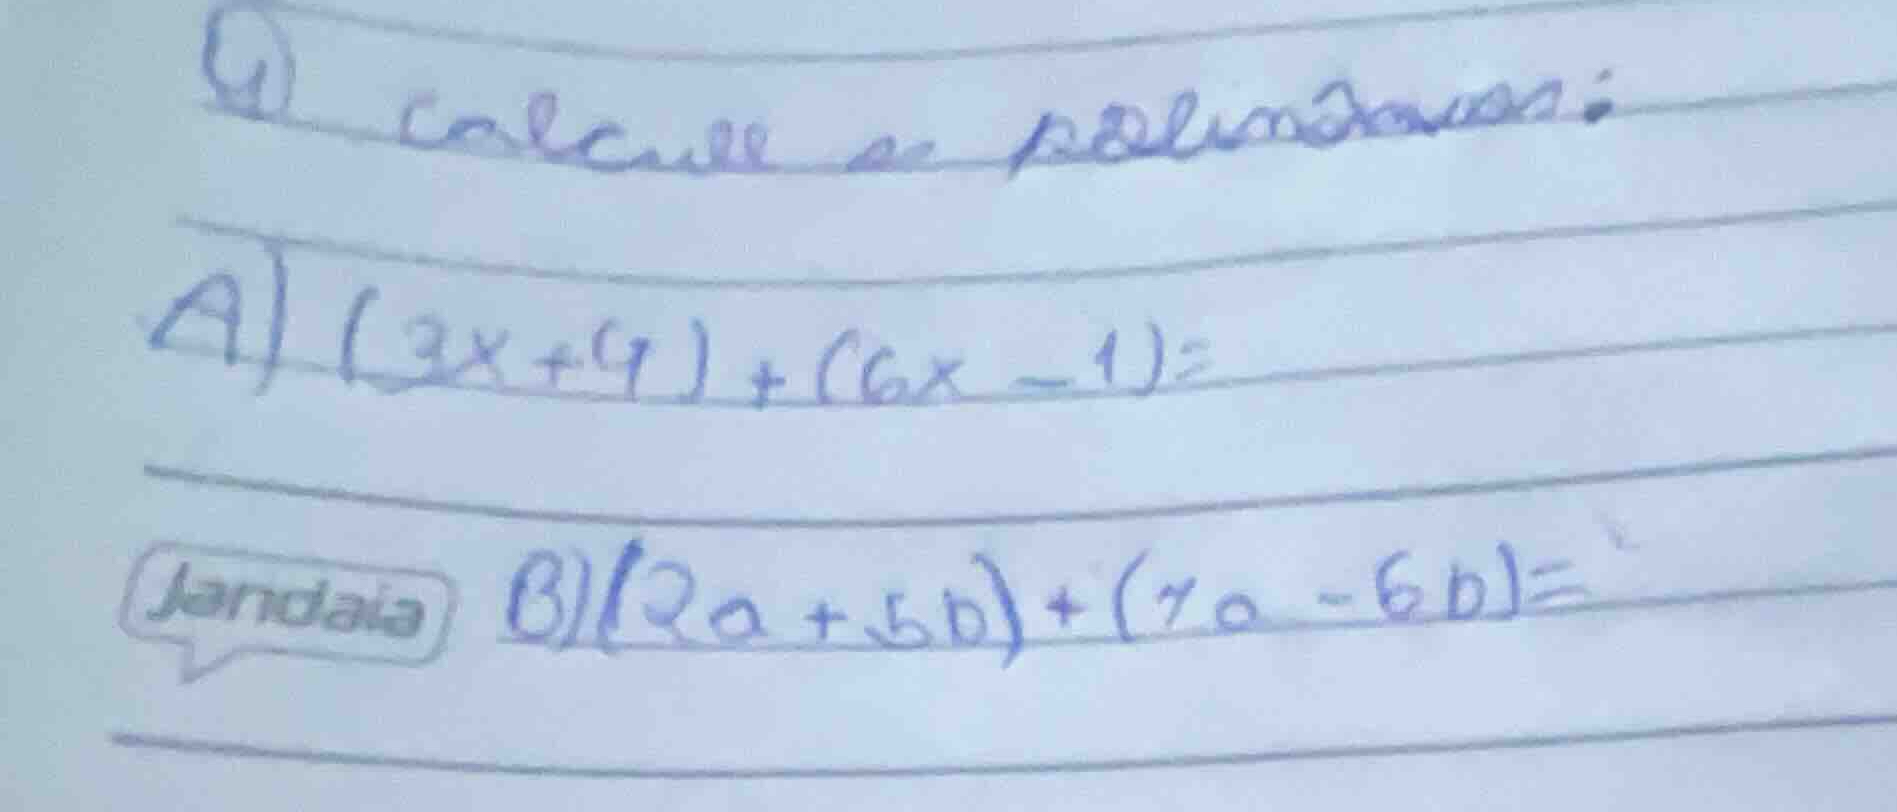 4) calcule os polinômios:
A) (3x+4) + (6x - 1)=
Jandaia
B) (2a + 5b) + (7a - 6b)=